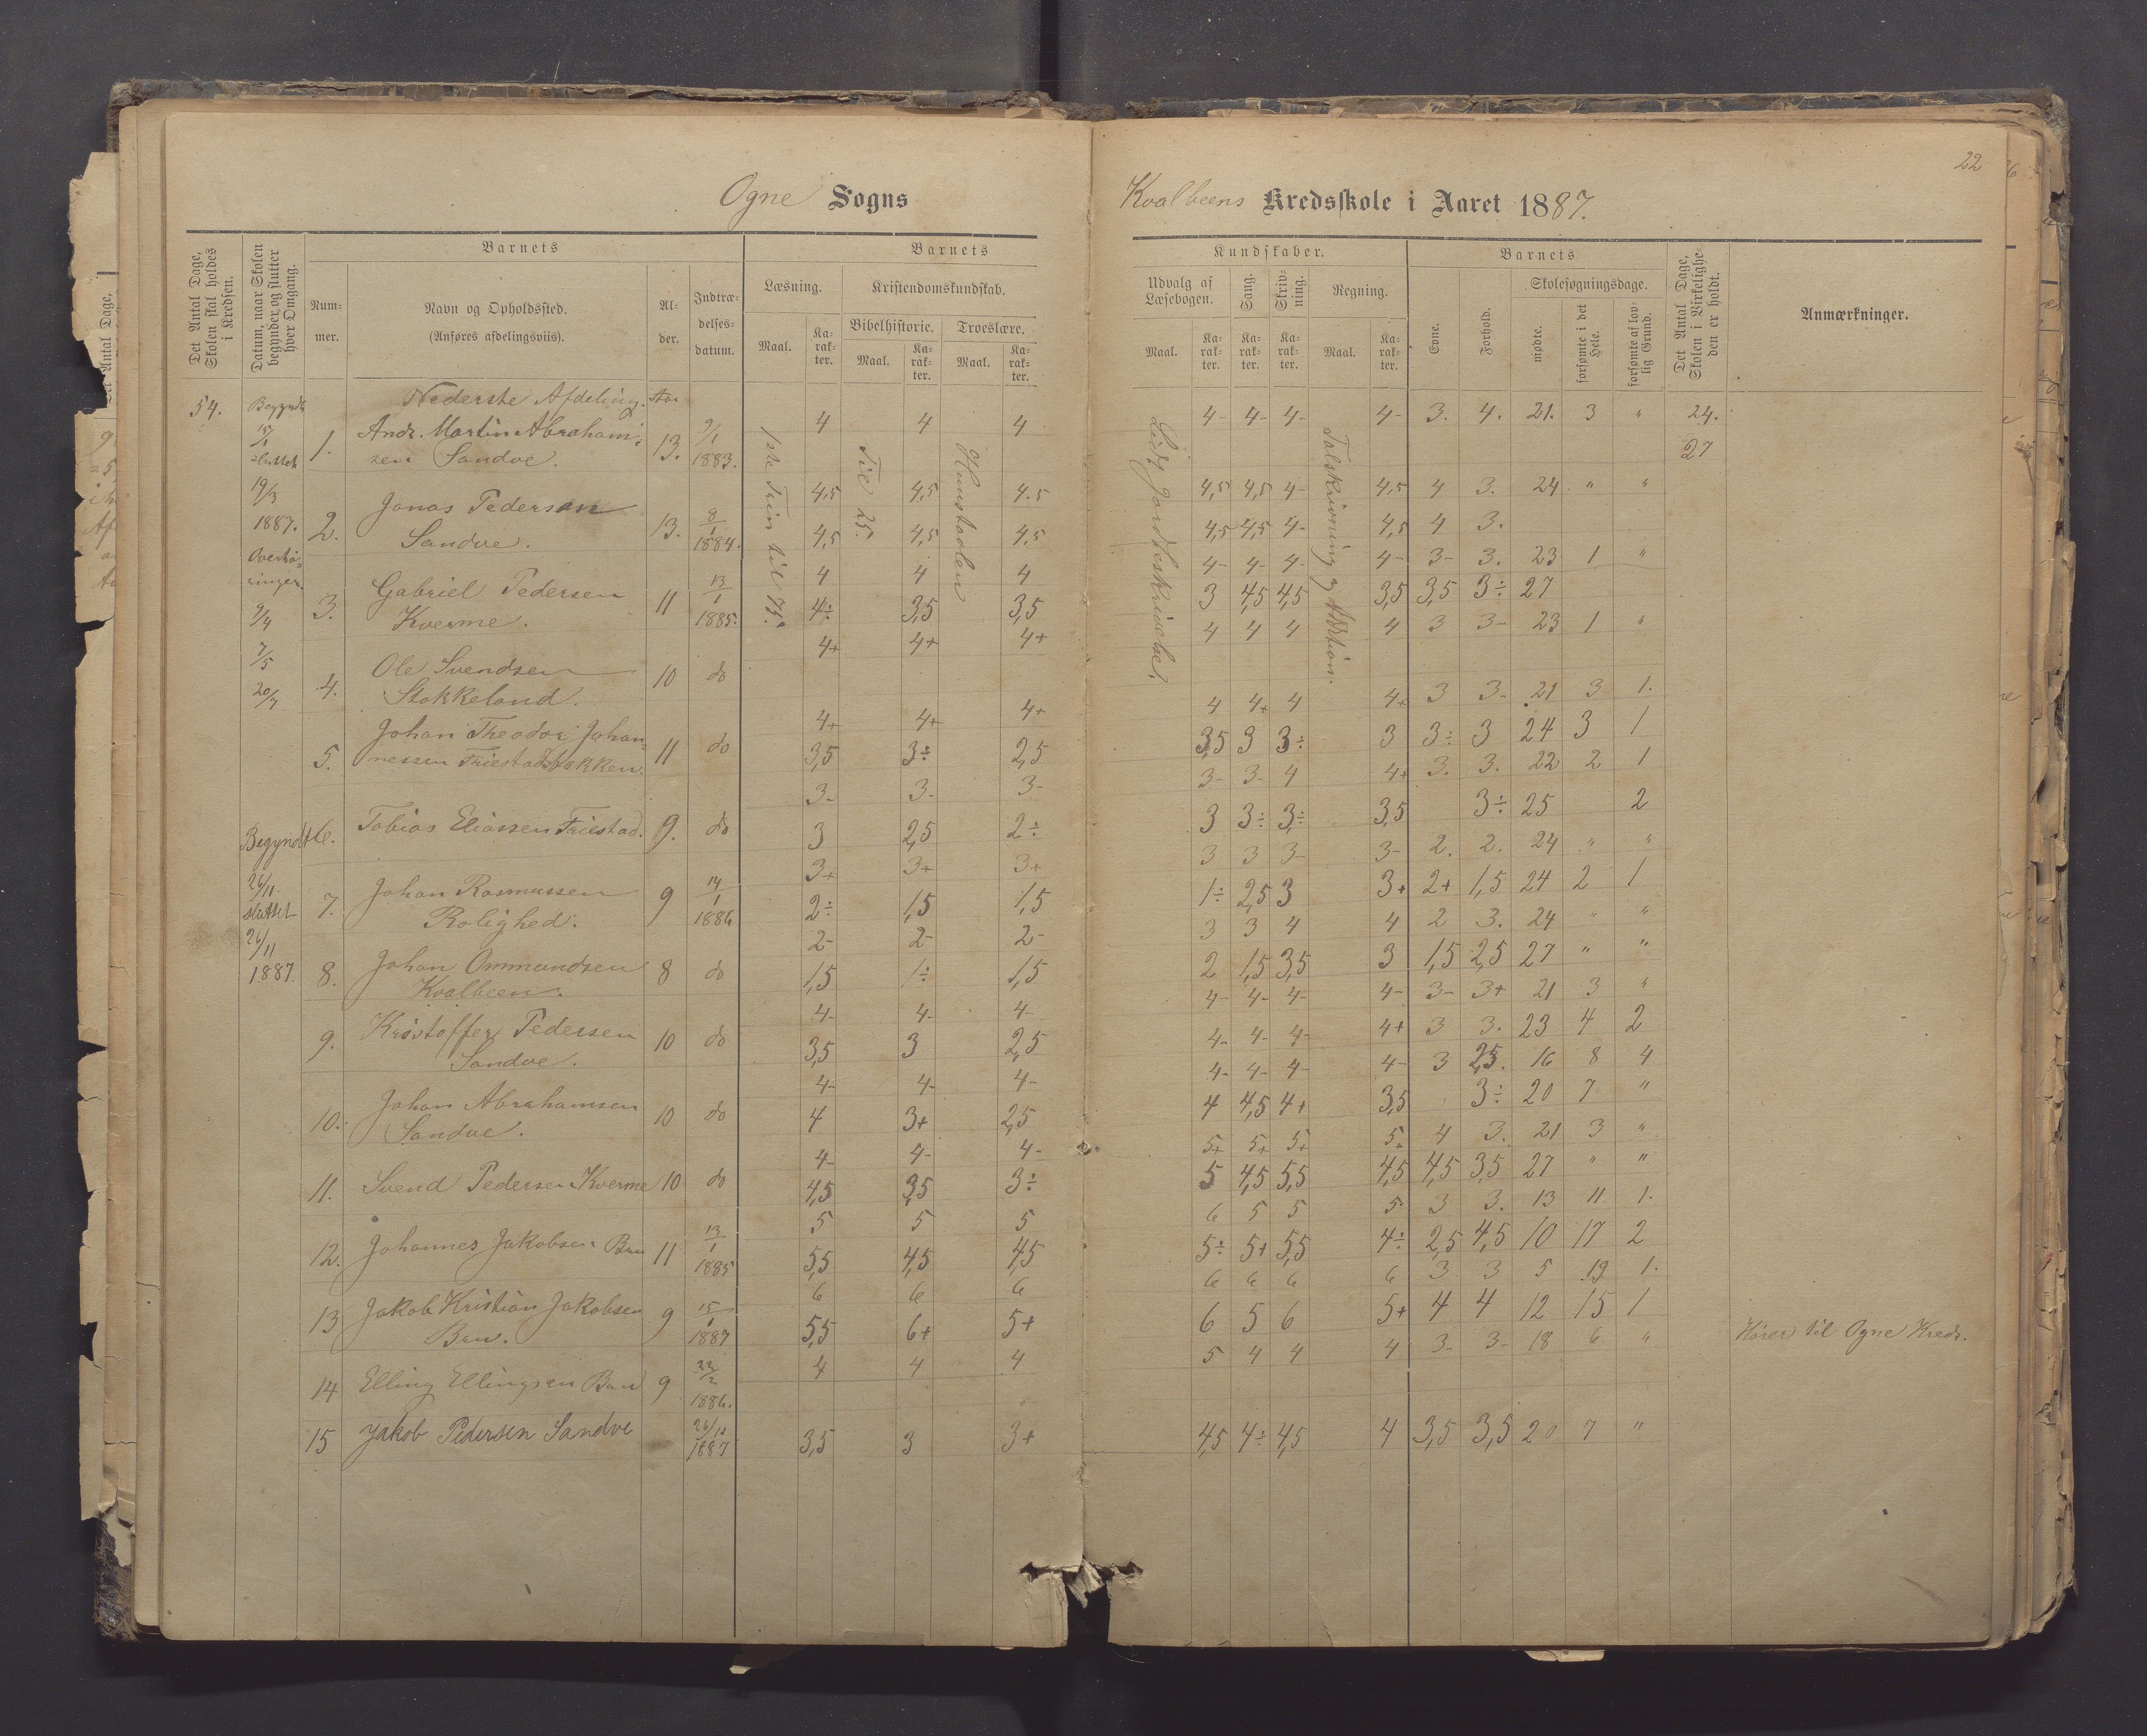 22
Ogne Sogns
Kvalbeens Kredsskole i Aaret 1887.
Det Antal Dage, Skolen skal holdes i Kredsen.
Datum, naar Skolen begynder og slutter hver Omgang.
Barnets
Nummer.
Navn og Opholdssted.
(Anføres afdelingsviis).
Alder.
Indtrædelsesdatum.
Barnets
Læsning.
Kristendomskundskab.
Bibelhistorie.
Troeslære.
Maal.
Karakter.
Maal.
Karakter.
Maal.
Karakter.
Kundskaber.
Udvalg af Læsebogen.
Sang.
Skrivning.
Regning.
Maal.
Karakter.
Karakter.
Karakter.
Maal.
Karakter.
Barnets
Evne.
Forhold.
Skolesøgningsdage.
mødte.
forsømte i det Hele.
forsømte af lovlig Grund.
Det Antal Dage, Skolen i Virkeligheden er holdt.
Anmærkninger.
54.
Begyndt
15/1
sluttet
19/3
1887.
9/4
7/5
20/7
Begyndt
26/11
sluttet
26/11
1887.
Nederste Afdeling.
1ste Trin til 75.
Til 25.
Talskrivning og
4 4 4 4- 4- 4- 4- 3. 4. 21. 3 " 24.
1. Andr. Martin Abrahamsen Sandve. 13. 9/1 1883.
27
4,5 4,5 4.5 4,5 4,5 4- 4,5 4 3. 24 " "
2. Jonas Pedersen Sandve. 13. 8/1 1884.
4,5 4,5 4,5 4,5 4,5 4- 4,5 4 3.
4 4 4 4- 4- 4- 4- 3- 3. 23 1 "
3. Gabriel Pedersen Kverme. 11 13/1 1885.
4÷ 3,5 3,5 3 4,5 4,5 3,5 3,5 3÷ 27
4+ 4+ 4+ 4 4 4 4 3 3- 23 1 "
4. Ole Svendsen Stokkeland. 10 do
4+ 4+ 4+ 4 4+ 4 4+ 3 3- 21 3 1.
5. Johan Theodor Johannessen Friestadbakken. 11 do
3,5 3÷ 2,5 3,5 3 3÷ 3 3÷ 3 24 3 1
3- 3- 3- 3- 3- 4 4+ 3. 3. 22 2 1
6. Tobias Eliassen Friestad. 9. do
3 2,5 2÷ 3 3÷ 3÷ 3,5 3÷ 25 2
3+ 3+ 3+ 3 3 3- 3- 2. 2. 24 " "
7. Johan Rasmussen Rolighed. 9 14/1 1886
2÷ 1,5 1,5 1÷ 2,5 3 3+ 2+ 1,5 24 2 1
2- 2- 2- 3 3 4 4 2 3. 24 " "
8. Johan Ommundsen Kvalbeen. 8 do
1,5 1÷ 1,5 2 1,5 3,5 3 1,5 2,5 27 " "
4- 4- 4- 4- 4- 4- 4- 3- 3+ 21 3 "
9. Kristoffer Pedersen Sandve. 10 do
3,5 3 2,5 4- 4- 4- 4+ 3 3. 23 4 2
4- 4- 4- 4- 4- 4- 4- 3 2,5. 16 8 4
10. Johan Abrahamsen Sandve. 10 do
4 3+ 2,5 4 4,5 4+ 3,5 3÷ 20 7 "
4- 4- 4- 5+ 5+ 5+ 5+ 4 3. 21 3 "
11. Svend Pedersen Kverme 10 do
4,5 3,5 3÷ 5 4,5 5,5 4,5 4,5 3,5 27 " "
5 5 5 6 5 5 5 3 3. 13 11 1.
12. Johannes Jakobsen Bru 11 13/1 1885
5,5 4,5 4,5 5÷ 5+ 5,5 4÷ 2,5 4,5 10 17 2
6 6 6 6 6 6 6 3 3 5 19 1.
13 Jakob Kristian Jakobsen Bru. 9 15/1 1887
5,5 6+ 5+ 6 5 6 5+ 4 4 12 15 1
4 4 4 5 4 4 4 3- 3- 18 6 " Hører til Ogne Kreds.
14 Elling Ellingsen Bru 9 22/2 1886.
15 Jakob Pedersen Sandve 26/11 1887
3,5 3 3+ 4,5 4÷ 4,5 4 3,5 3,5 20 7 "